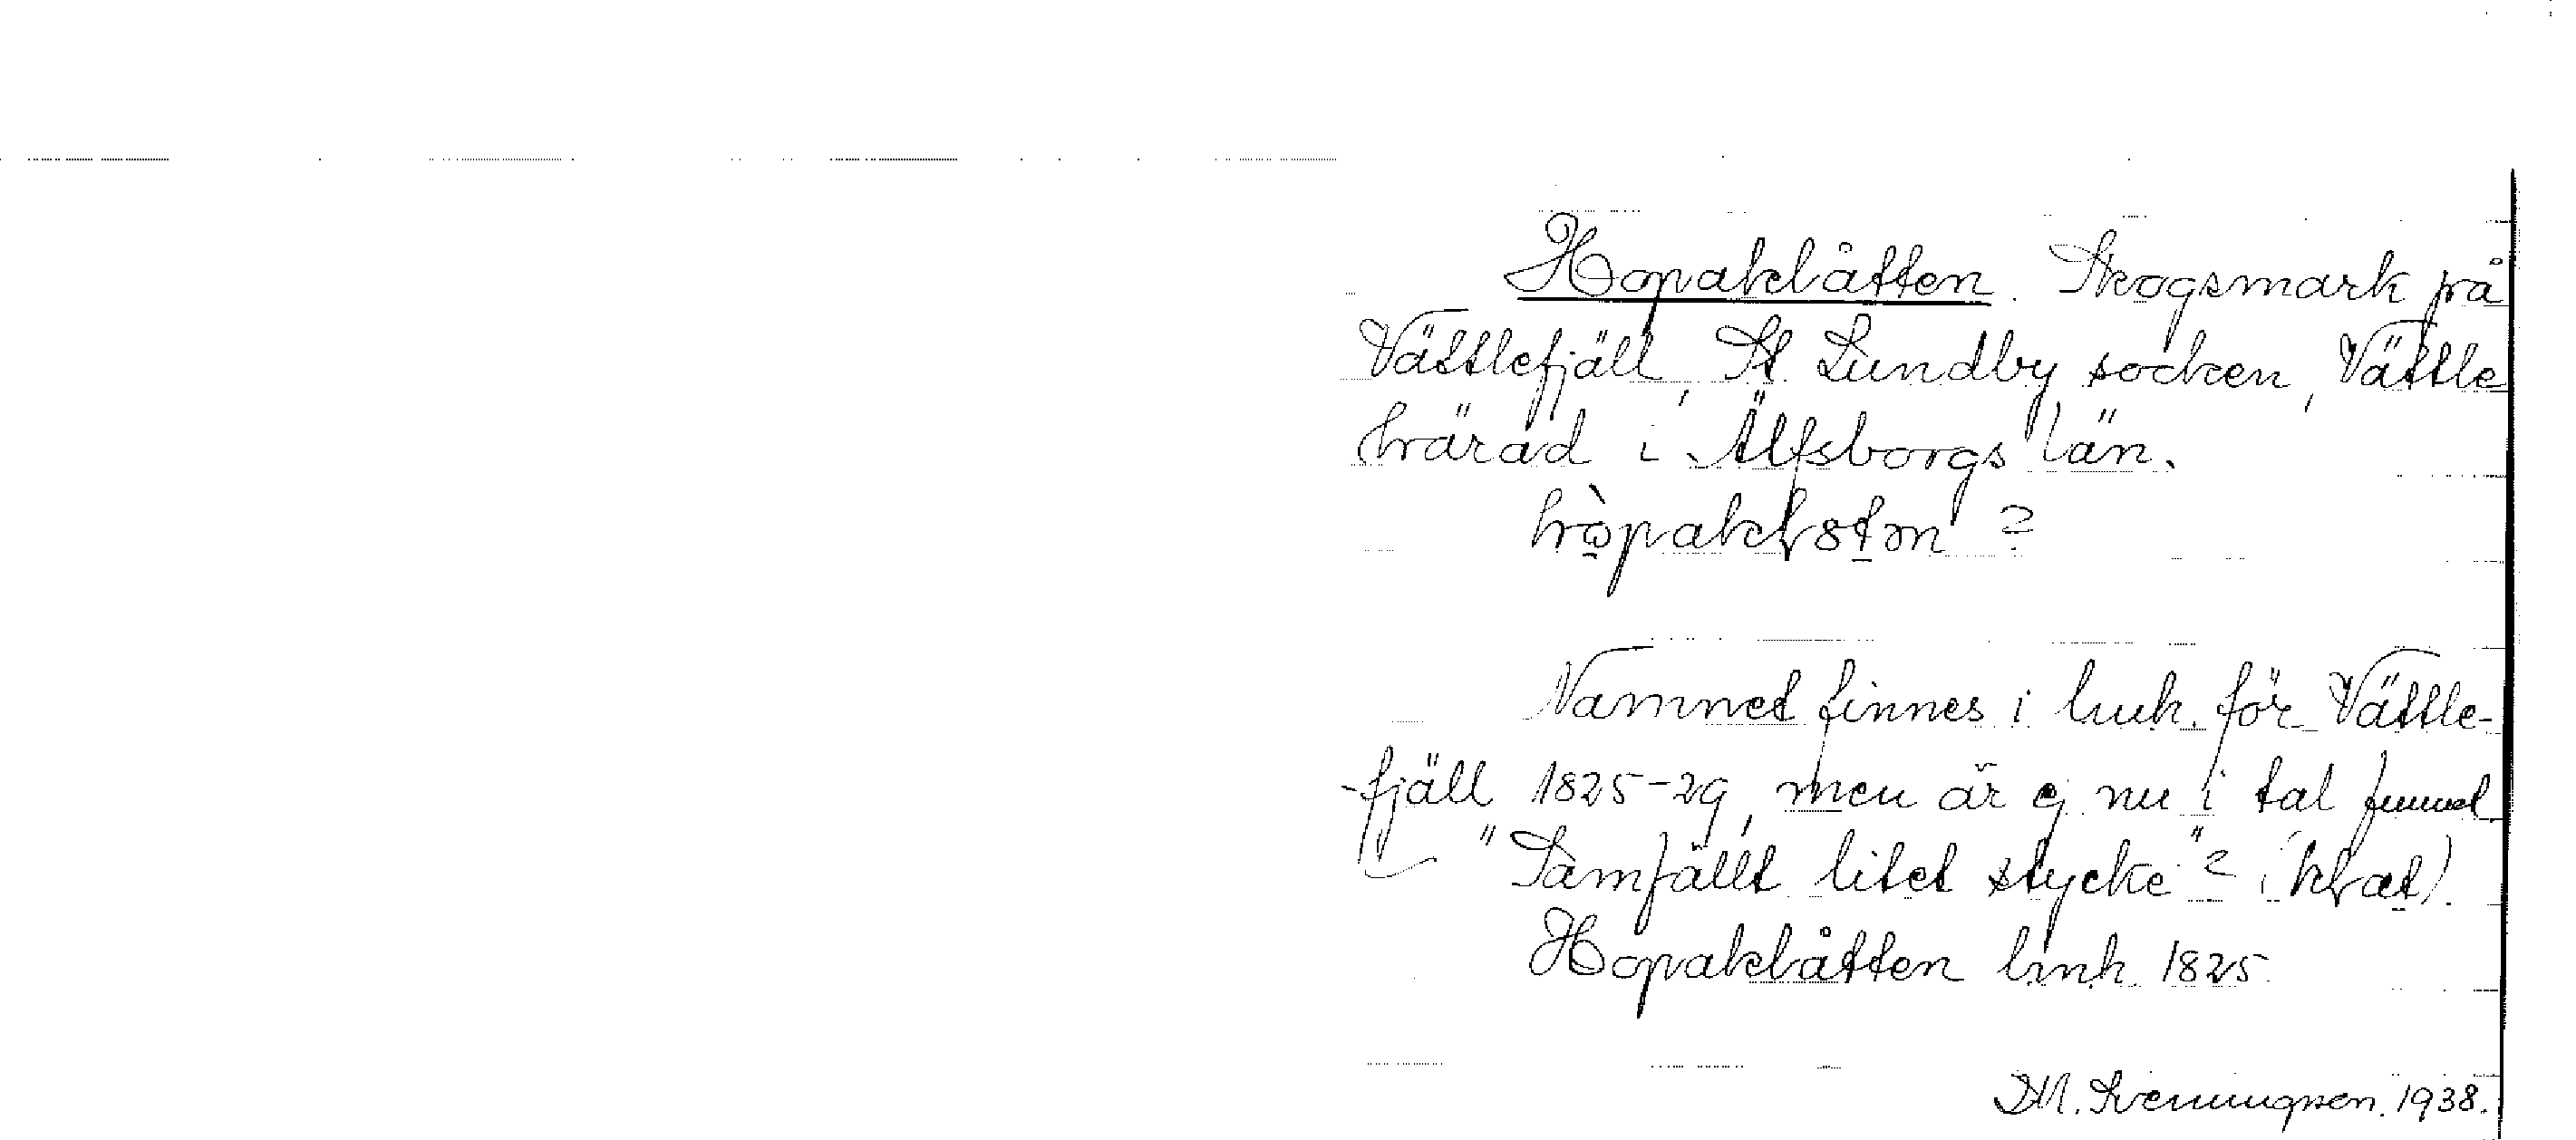 Hopaklåtten. Skogsmark på
Vättlefjäll, St. Lundby socken, Vättle
härad i Älfsborgs län.
?
Namnet finnes i luh. för Vättle-
-fjäll 1825-29, men är ej nu i tal funnet
"Samfällt litet stycke"?
Hopaklåtten luh. 1825.
D.M. Svenningsen. 1938.